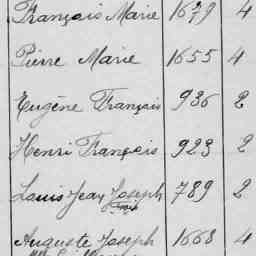 François Marie 1679 4
Pierre Marie 1655 4
Eugène François 936 2
Henri François 923 2
Louis Jean Joseph 789 2
Auguste Joseph 1668 4